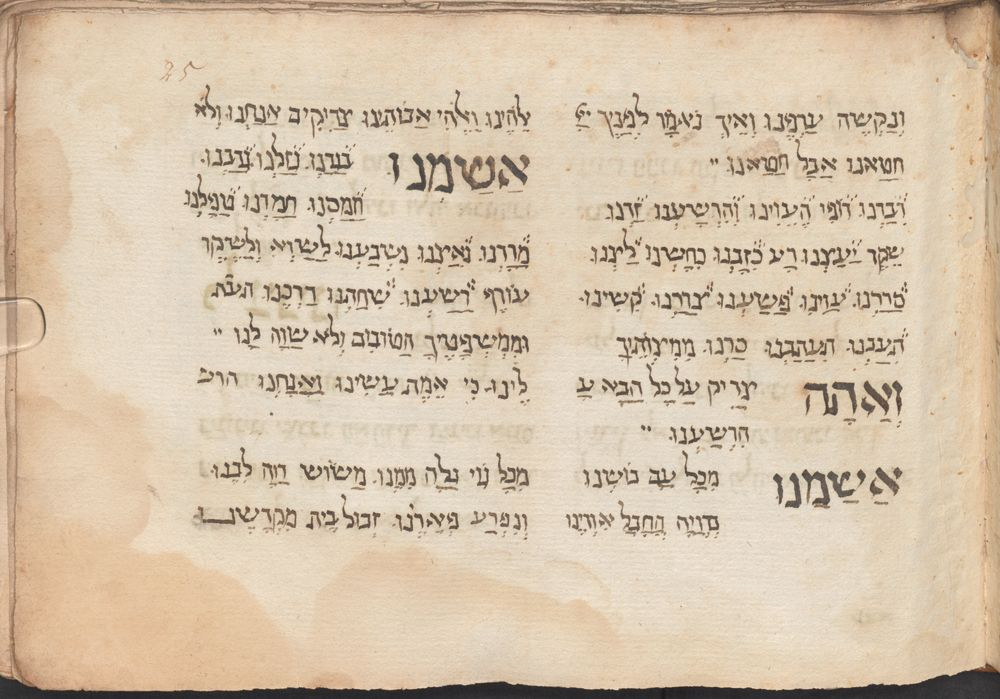 ונקשה ערפנו ואיך נאמר לפניך יי אלהינו ואלהי אבותינו צדיקים אנחנו ולא
חטאנו אבל חטאנו ״ אשמנו בגדנו גזלנו גנבנו
דברנו דופי העוינו והרשענו זדנו חמסנו חמדנו טפלנו
שקר יעצנו רע כזבנו כחשנו לצנו מרדנו נאצנו נשבענו לשוא ולשקר
סררנו עוינו פשענו צררנו קשינו עורף רשענו שחתנו דרכנו
תעבנו סרנו ממצותיך וממשפטיך הטובים ולא שוה לנו ״
ואתה צדיק על כל הבא ע לינו כי אמת עשית ואנחנו הרש
הרשענו ״
אשמנו מכל עם בושנו מכל גוי גלה ממנו משוש דוה לבנו
החבל אוויינו ונפרע פארנו זבול בית מקדשינו
25